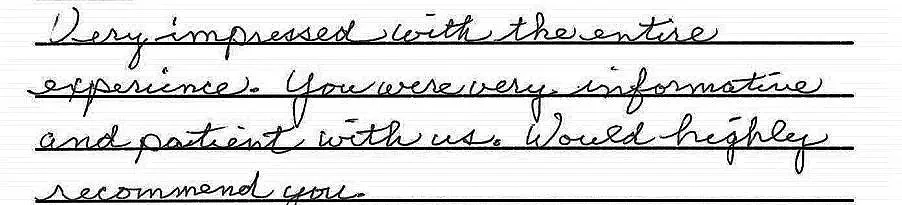 Very impressed with the entire
experience. You were very informative
and patient with us. Would highly
recommend you.